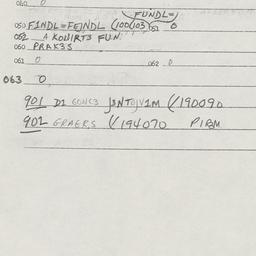 060 0
FUNDL=
050 F1NDL=FEJNDL (100(103)53 0
052 A KOWIRT3 FUN
060 PRAK3S
061 0 062 0
063 0
901 D1 GONC3 J3NTOJV1M (/190090
902 GRAERS (/194070 PIRGM